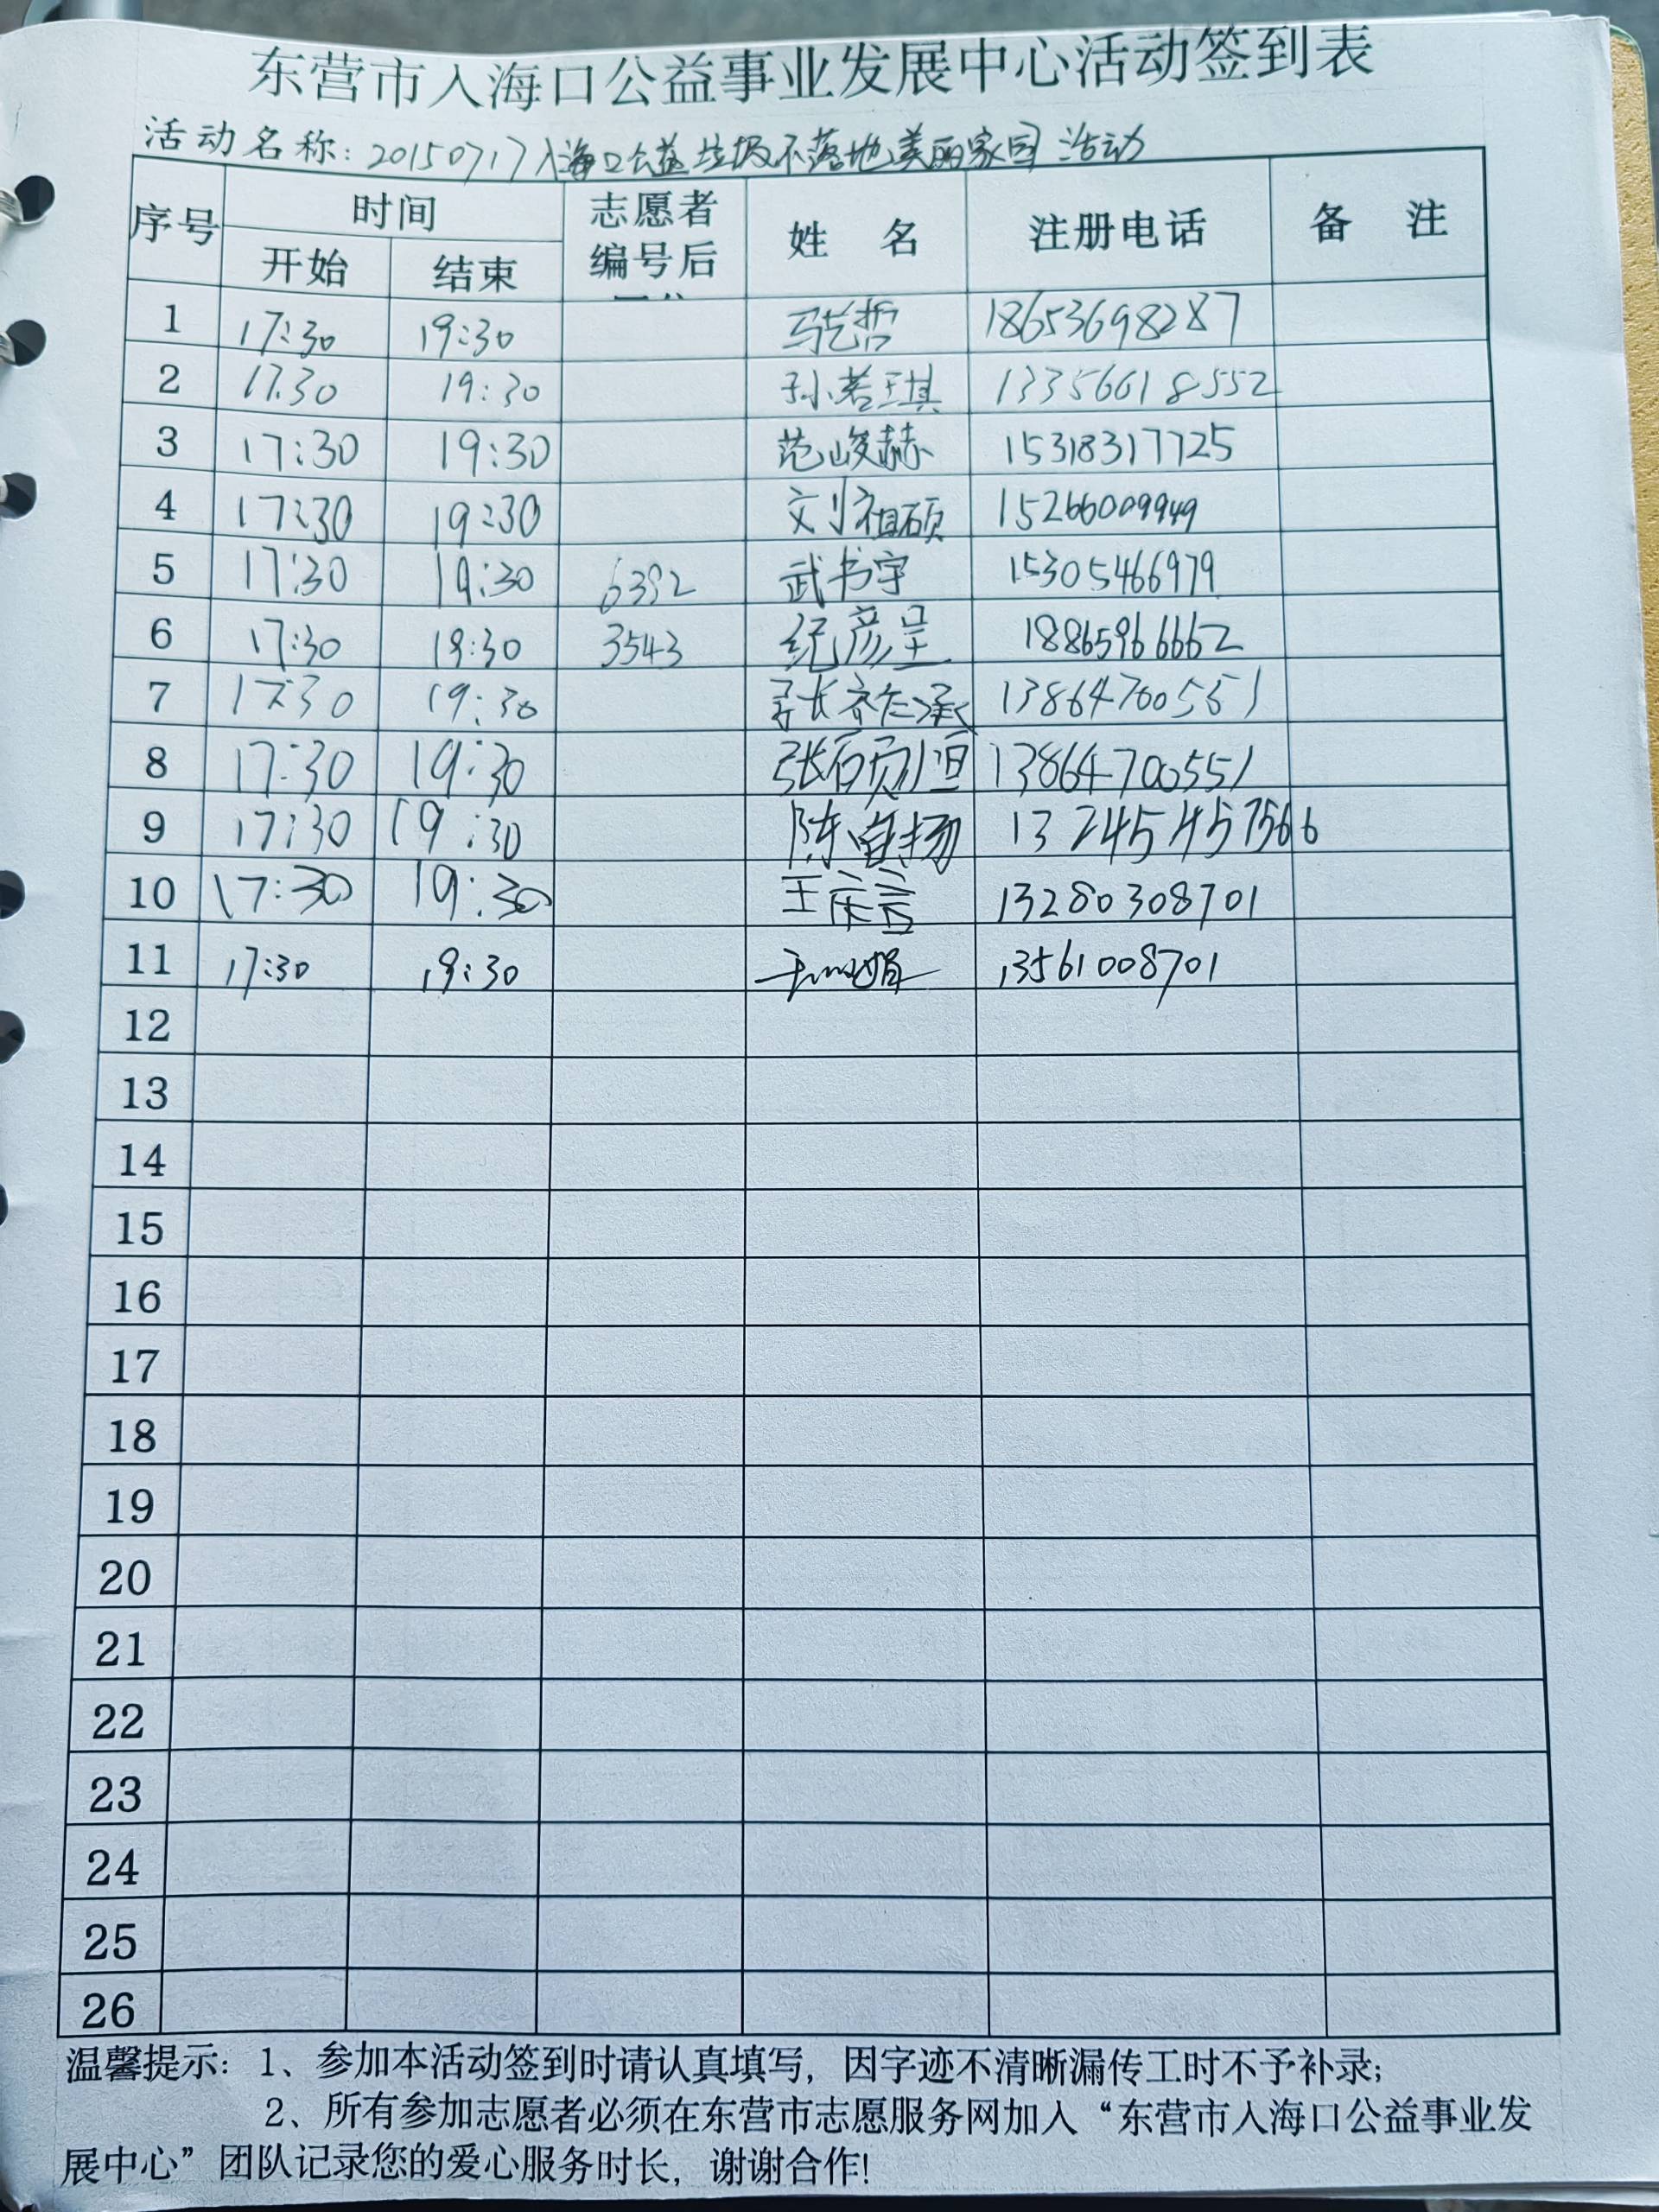 东营市入海口公益事业发展中心活动签到表
活动名称：20150717入海口公益垃圾不落地美丽家园活动
序号 时间 志愿者编号后 姓 名 注册电话 备 注
开始 结束
1 17:30 19:30 马艺哲 18653698287
2 17:30 19:30 孙若琪 13356618552
3 17:30 19:30 范峻赫 15318317725
4 17:30 19:30 刘祖硕 15266009949
5 17:30 19:30 6392 武书宇 15305466979
6 17:30 19:30 3543 纪彦呈 18865966662
7 17:30 19:30 13864700551
8 17:30 19:30 张硕恒 13864700551
9 17:30 19:30 陈 扬 13245457566
10 17:30 19:30 王 言 13280308701
11 17:30 19:30 13561008701
12
13
14
15
16
17
18
19
20
21
22
23
24
25
26
温馨提示：1、参加本活动签到时请认真填写，因字迹不清晰漏传工时不予补录；
2、所有参加志愿者必须在东营市志愿服务网加入“东营市入海口公益事业发
展中心”团队记录您的爱心服务时长，谢谢合作！